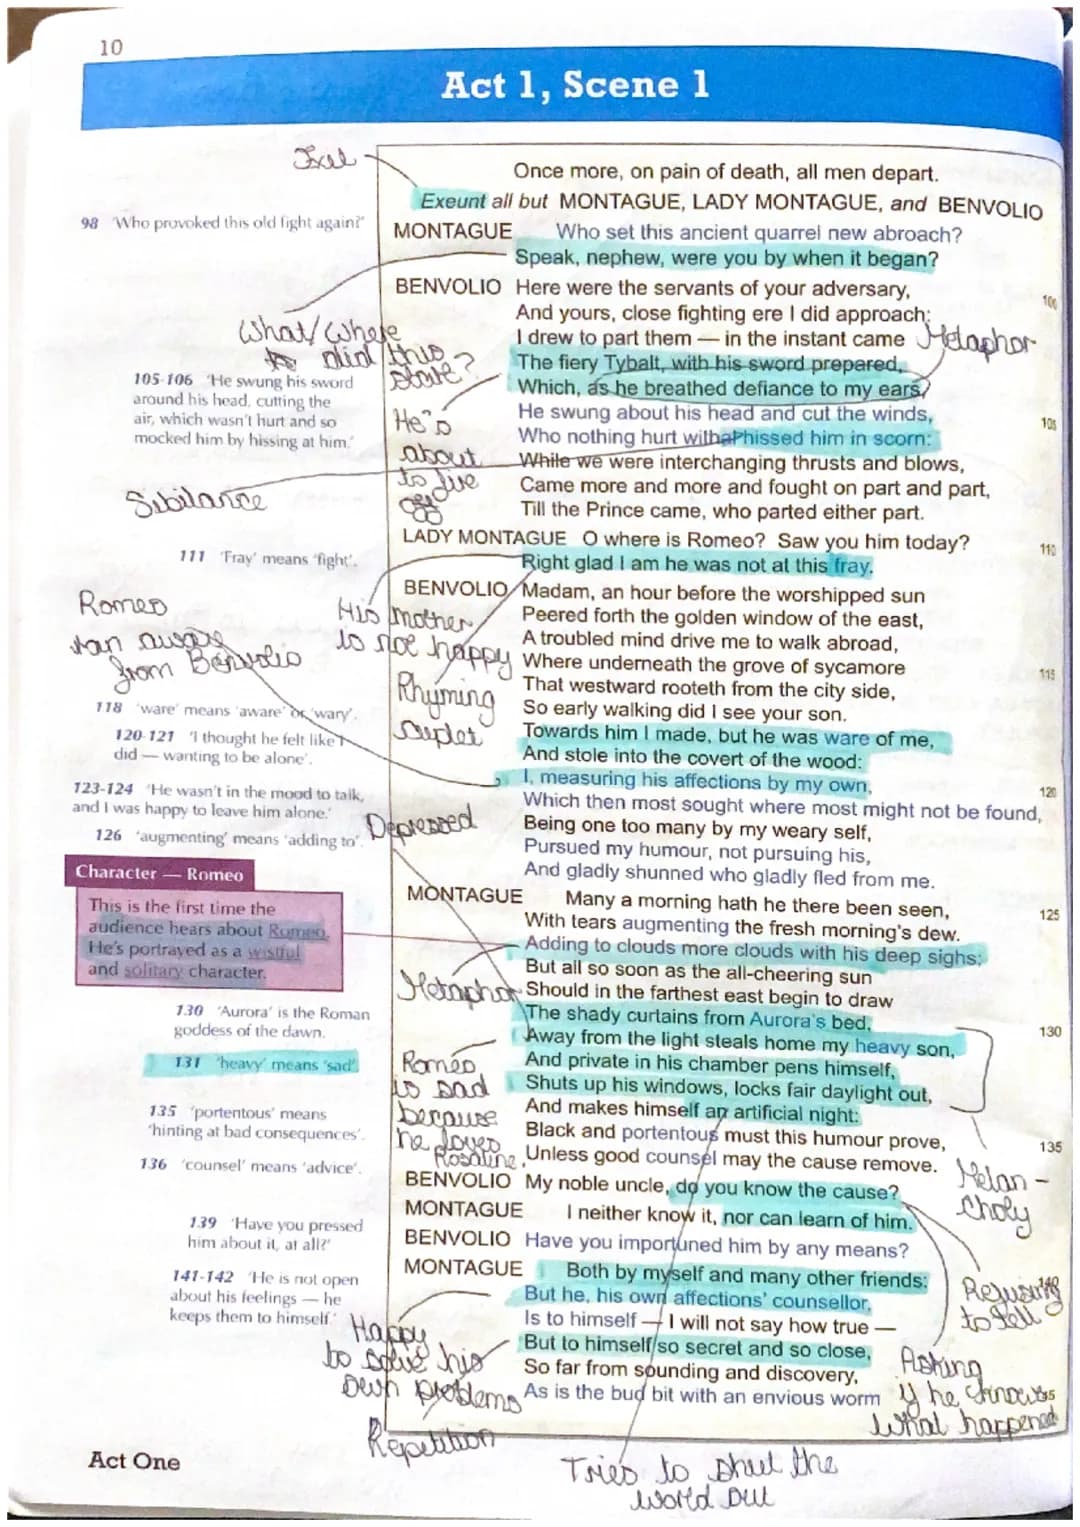 10
Act 1, Scene 1
Once more, on pain of death, all men depart.
Exeunt all but MONTAGUE, LADY MONTAGUE, and BENVOLIO
98 'Who provoked this old fight again?'
MONTAGUE Who set this ancient quarrel new abroach?
Speak, nephew, were you by when it began?
BENVOLIO Here were the servants of your adversary,
100
And yours, close fighting ere I did approach:
I drew to part them — in the instant came
Metaphor
What/Where
did this
The fiery Tybalt, with his sword prepared,
Which, as he breathed defiance to my ears,
105-106 'He swung his sword
around his head, cutting the
air, which wasn't hurt and so
mocked him by hissing at him.'
He's
about
to
He swung about his head and cut the winds,
105
Who nothing hurt withal hissed him in scorn:
While we were interchanging thrusts and blows,
Came more and more and fought on part and part,
Till the Prince came, who parted either part.
Sibilance
LADY MONTAGUE O where is Romeo? Saw you him today?
110
Right glad I am he was not at this fray.
111 'Fray' means 'fight'.
BENVOLIO Madam, an hour before the worshipped sun
Peered forth the golden window of the east,
A troubled mind drive me to walk abroad,
Where underneath the grove of sycamore
115
That westward rooteth from the city side,
So early walking did I see your son.
Romeo
ran away
from Benvolio
His mother
is not happy
Rhyming
118 'ware' means 'aware' or 'wary'.
Towards him I made, but he was ware of me,
And stole into the covert of the wood:
120-121 'I thought he felt like I
did — wanting to be alone'.
I, measuring his affections by my own,
120
Which then most sought where most might not be found,
Being one too many by my weary self,
Pursued my humour, not pursuing his,
And gladly shunned who gladly fled from me.
123-124 'He wasn't in the mood to talk,
and I was happy to leave him alone.'
Depressed
126 'augmenting' means 'adding to'.
MONTAGUE Many a morning hath he there been seen,
125
With tears augmenting the fresh morning's dew.
Adding to clouds more clouds with his deep sighs;
Character — Romeo
This is the first time the
audience hears about Romeo.
He's portrayed as a wistful
and solitary character.
But all so soon as the all-cheering sun
Should in the farthest east begin to draw
Metaphor
The shady curtains from Aurora's bed,
130
Away from the light steals home my heavy son,
And private in his chamber pens himself,
Shuts up his windows, locks fair daylight out,
And makes himself an artificial night:
130 'Aurora' is the Roman
goddess of the dawn.
131 'heavy' means 'sad'.
Romeo
is sad
because
he loves
Rosaline
Black and portentous must this humour prove,
135
Unless good counsel may the cause remove.
135 'portentous' means
'hinting at bad consequences'.
136 'counsel' means 'advice'.
Melan-
choly
BENVOLIO My noble uncle, do you know the cause?
MONTAGUE I neither know it, nor can learn of him.
BENVOLIO Have you importuned him by any means?
139 'Have you pressed
him about it, at all?'
MONTAGUE Both by myself and many other friends:
140
But he, his own affections' counsellor,
Is to himself — I will not say how true —
But to himself so secret and so close,
So far from sounding and discovery,
As is the bud bit with an envious worm
141-142 'He is not open
about his feelings — he
keeps them to himself.'
Happy
to solve his
own problems
Repetition
Refusing
to tell
Asking
if he knows
what happened
Tries to shut the
world out
Act One